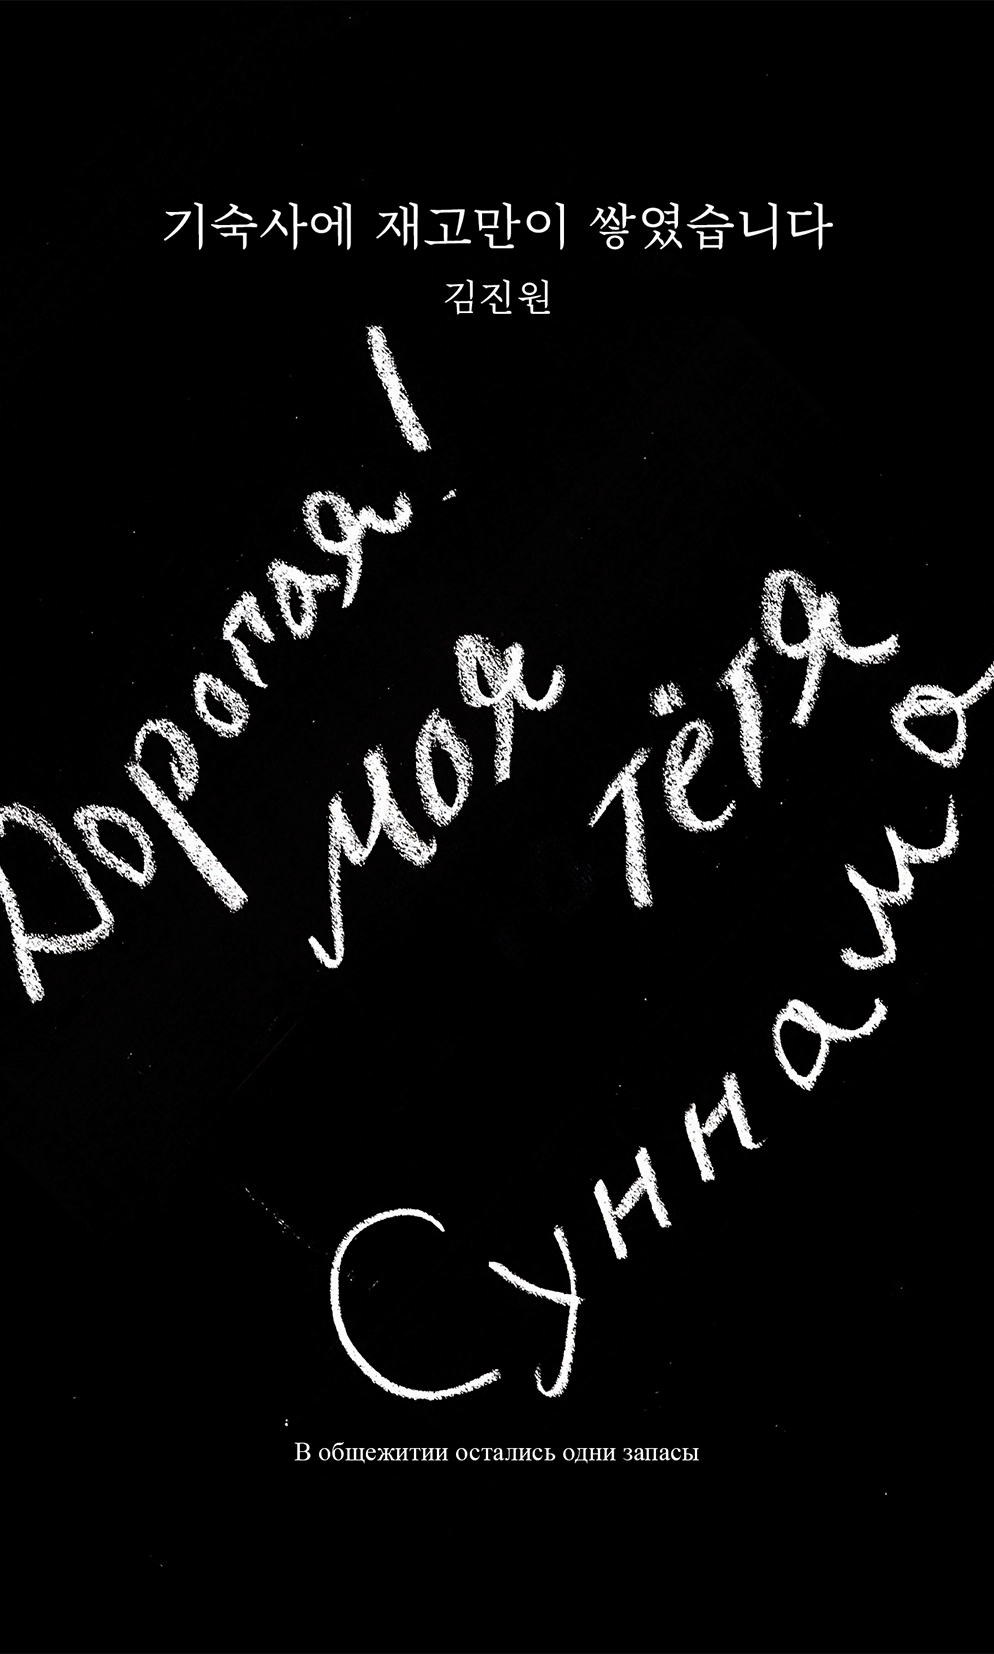 기숙사에 재고만이 쌓였습니다
김진원
Дорогая!
моя
тётя
Суннама
В общежитии остались одни запасы